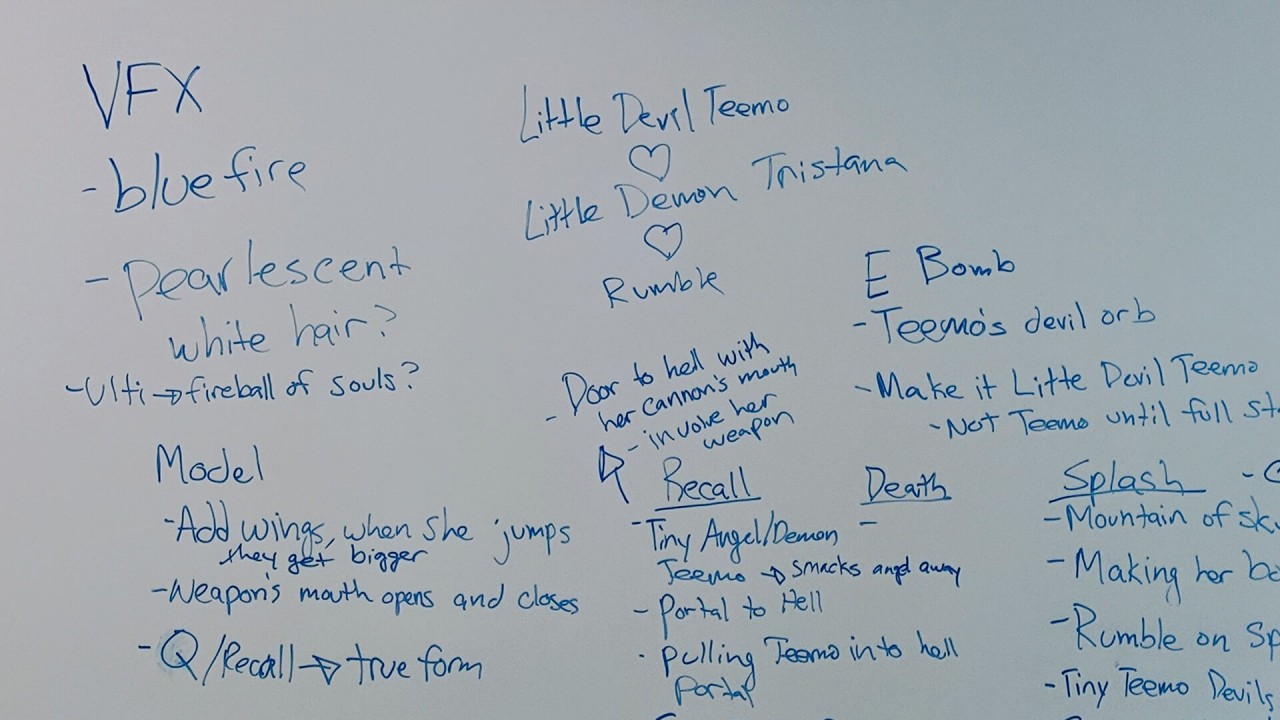 VFX
- blue fire
- Pearlescent
white hair?
- Ulti → fireball of souls?
Model
- Add wings, when she jumps
they get bigger
- Weapon's mouth opens and closes
- Q/Recall → true form
Little Devil Teemo
♡
Little Demon Tristana
♡
Rumble
- Door to hell with
her cannon's mouth
- involve her
weapon
Recall
- Tiny Angel/Demon
Teemo → smacks angd away
- Portal to Hell
- pulling Teemo into hell
portal
Death
-
E Bomb
- Teemo's devil orb
- Make it Litte Devil Teemo
- Not Teemo until full
Splash
- Mountain of
- Making her
- Rumble on
- Tiny Teemo Devils